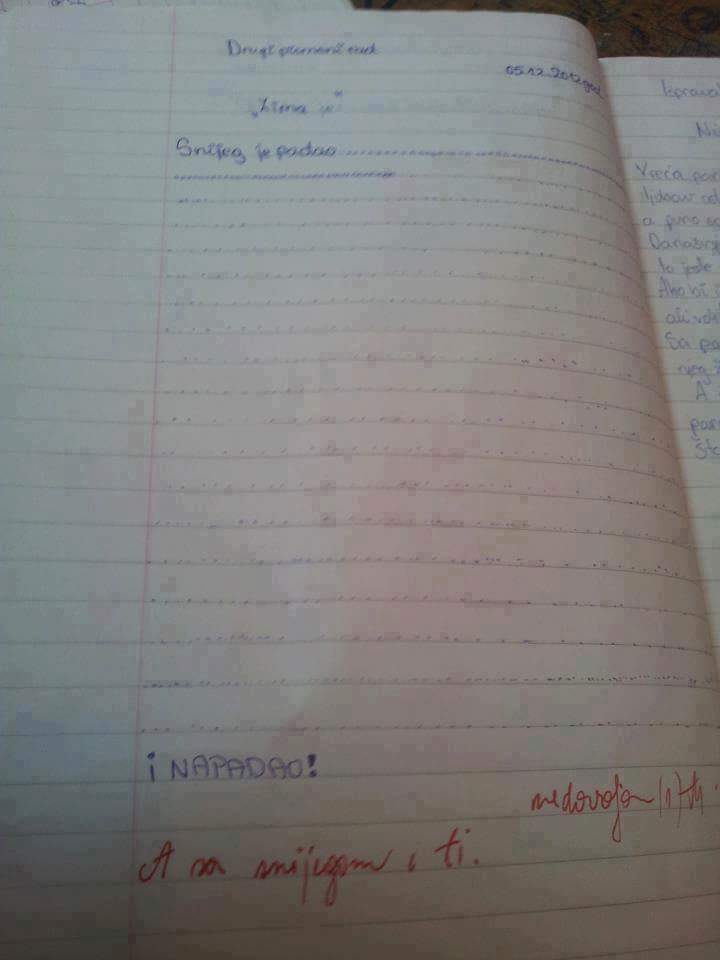 Drugi pismeni rad
05.12.2012god.
„Zima je"
Snijeg je padao ........................................
........................................
i NAPADAO!
nedovoljan (1)
A sa snijegom i ti.
Ispravak
Vreća
a puno
to jeste
Ako bi
ali
Sa
A